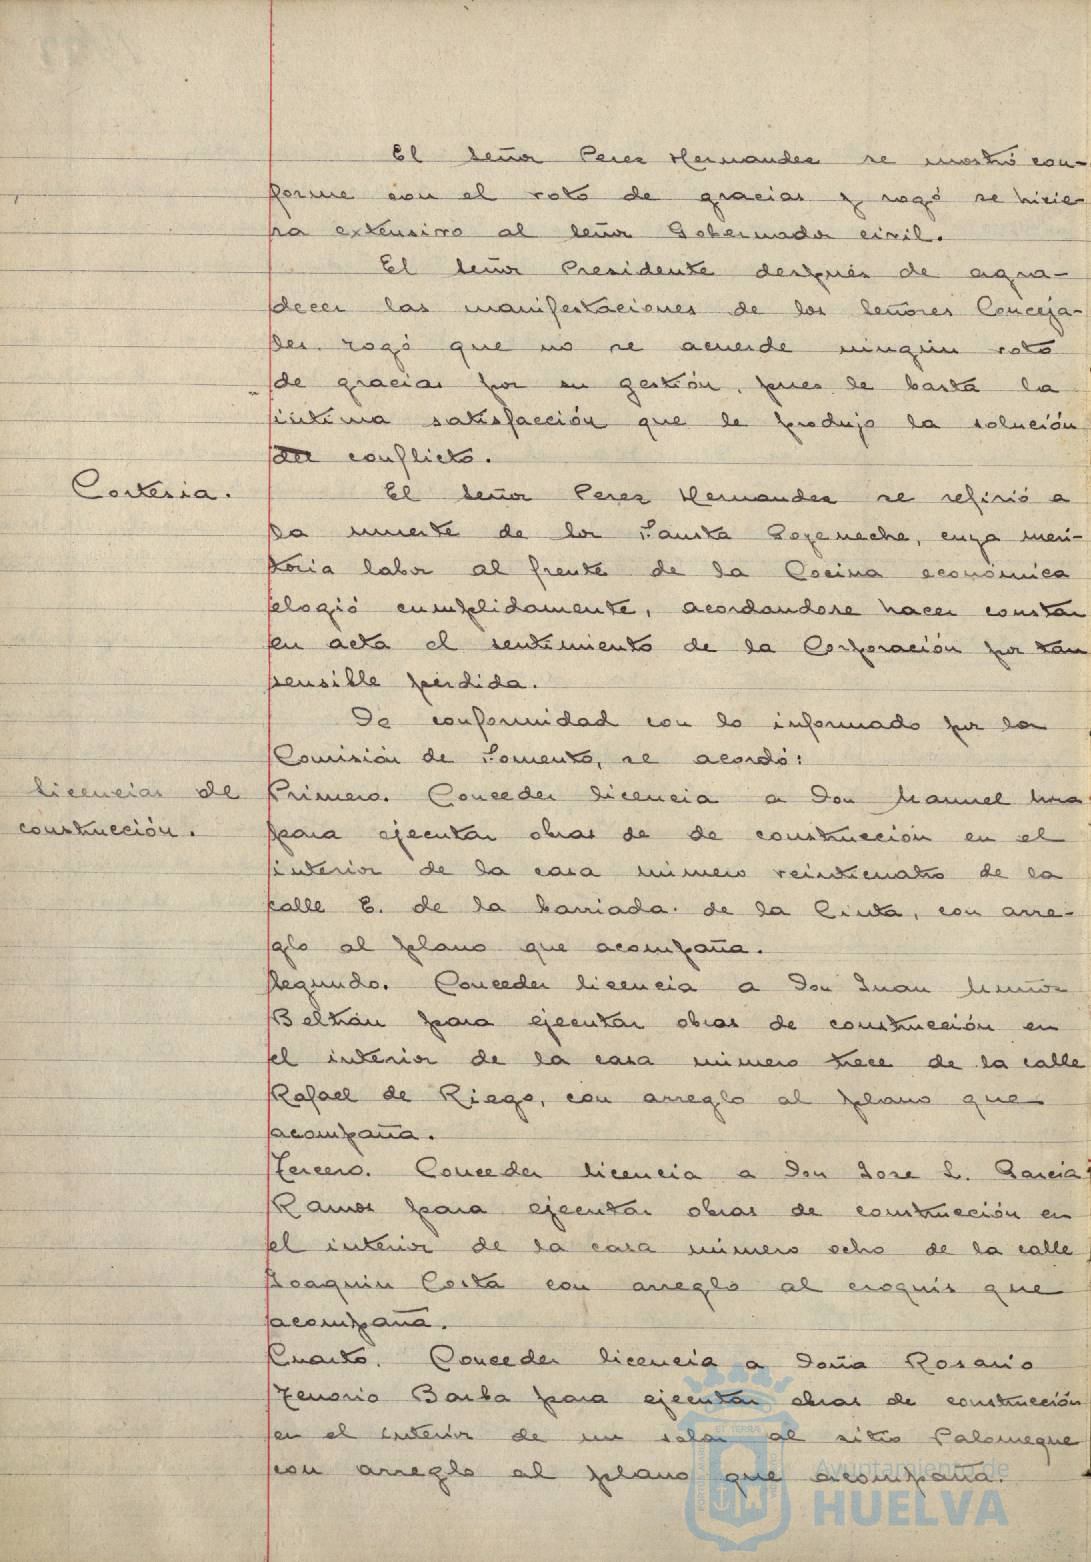 El señor Perez Hernandez se mostró con-
forme con el voto de gracias y rogó se hicie-
ra extensivo al señor Gobernador civil.
El señor Presidente después de agra-
decer las manifestaciones de los señores Conceja-
les rogó que no se acuerde ningún voto
de gracias por su gestión, pues le basta la
íntima satisfacción que le produjo la solución
del conflicto.
Cortesia.
El señor Perez Hernandez se refirió a
la muerte de Sor Fausta Goyeneche, cuya meri-
toria labor al frente de la Cocina económica
elogió cumplidamente, acordandose hacer constar
en acta el sentimiento de la Corporación por tan
sensible pérdida.
De conformidad con lo informado por la
Comisión de Fomento, se acordó:
Licencias de
construcción.
Primero. Conceder licencia a Don Manuel
para ejecutar obras de de construcción en el
interior de la casa número veinticuatro de la
calle E. de la barriada de la Cinta, con arre-
glo al plano que acompaña.
Segundo. Conceder licencia a Don Juan Muñoz
Beltrán para ejecutar obras de construcción en
el interior de la casa número trece de la calle
Rafael de Riego, con arreglo al plano que
acompaña.
Tercero. Conceder licencia a Don Jose L. Garcia
Ramos para ejecutar obras de construcción en
el interior de la casa número ocho de la calle
Joaquin Costa con arreglo al croquis que
acompaña.
Cuarto. Conceder licencia a Doña Rosario
Tenorio Barba para ejecutar obras de construcción
en el interior de un solar al sitio Palomeque
con arreglo al plano que acompaña.
Ayuntamiento de
HUELVA